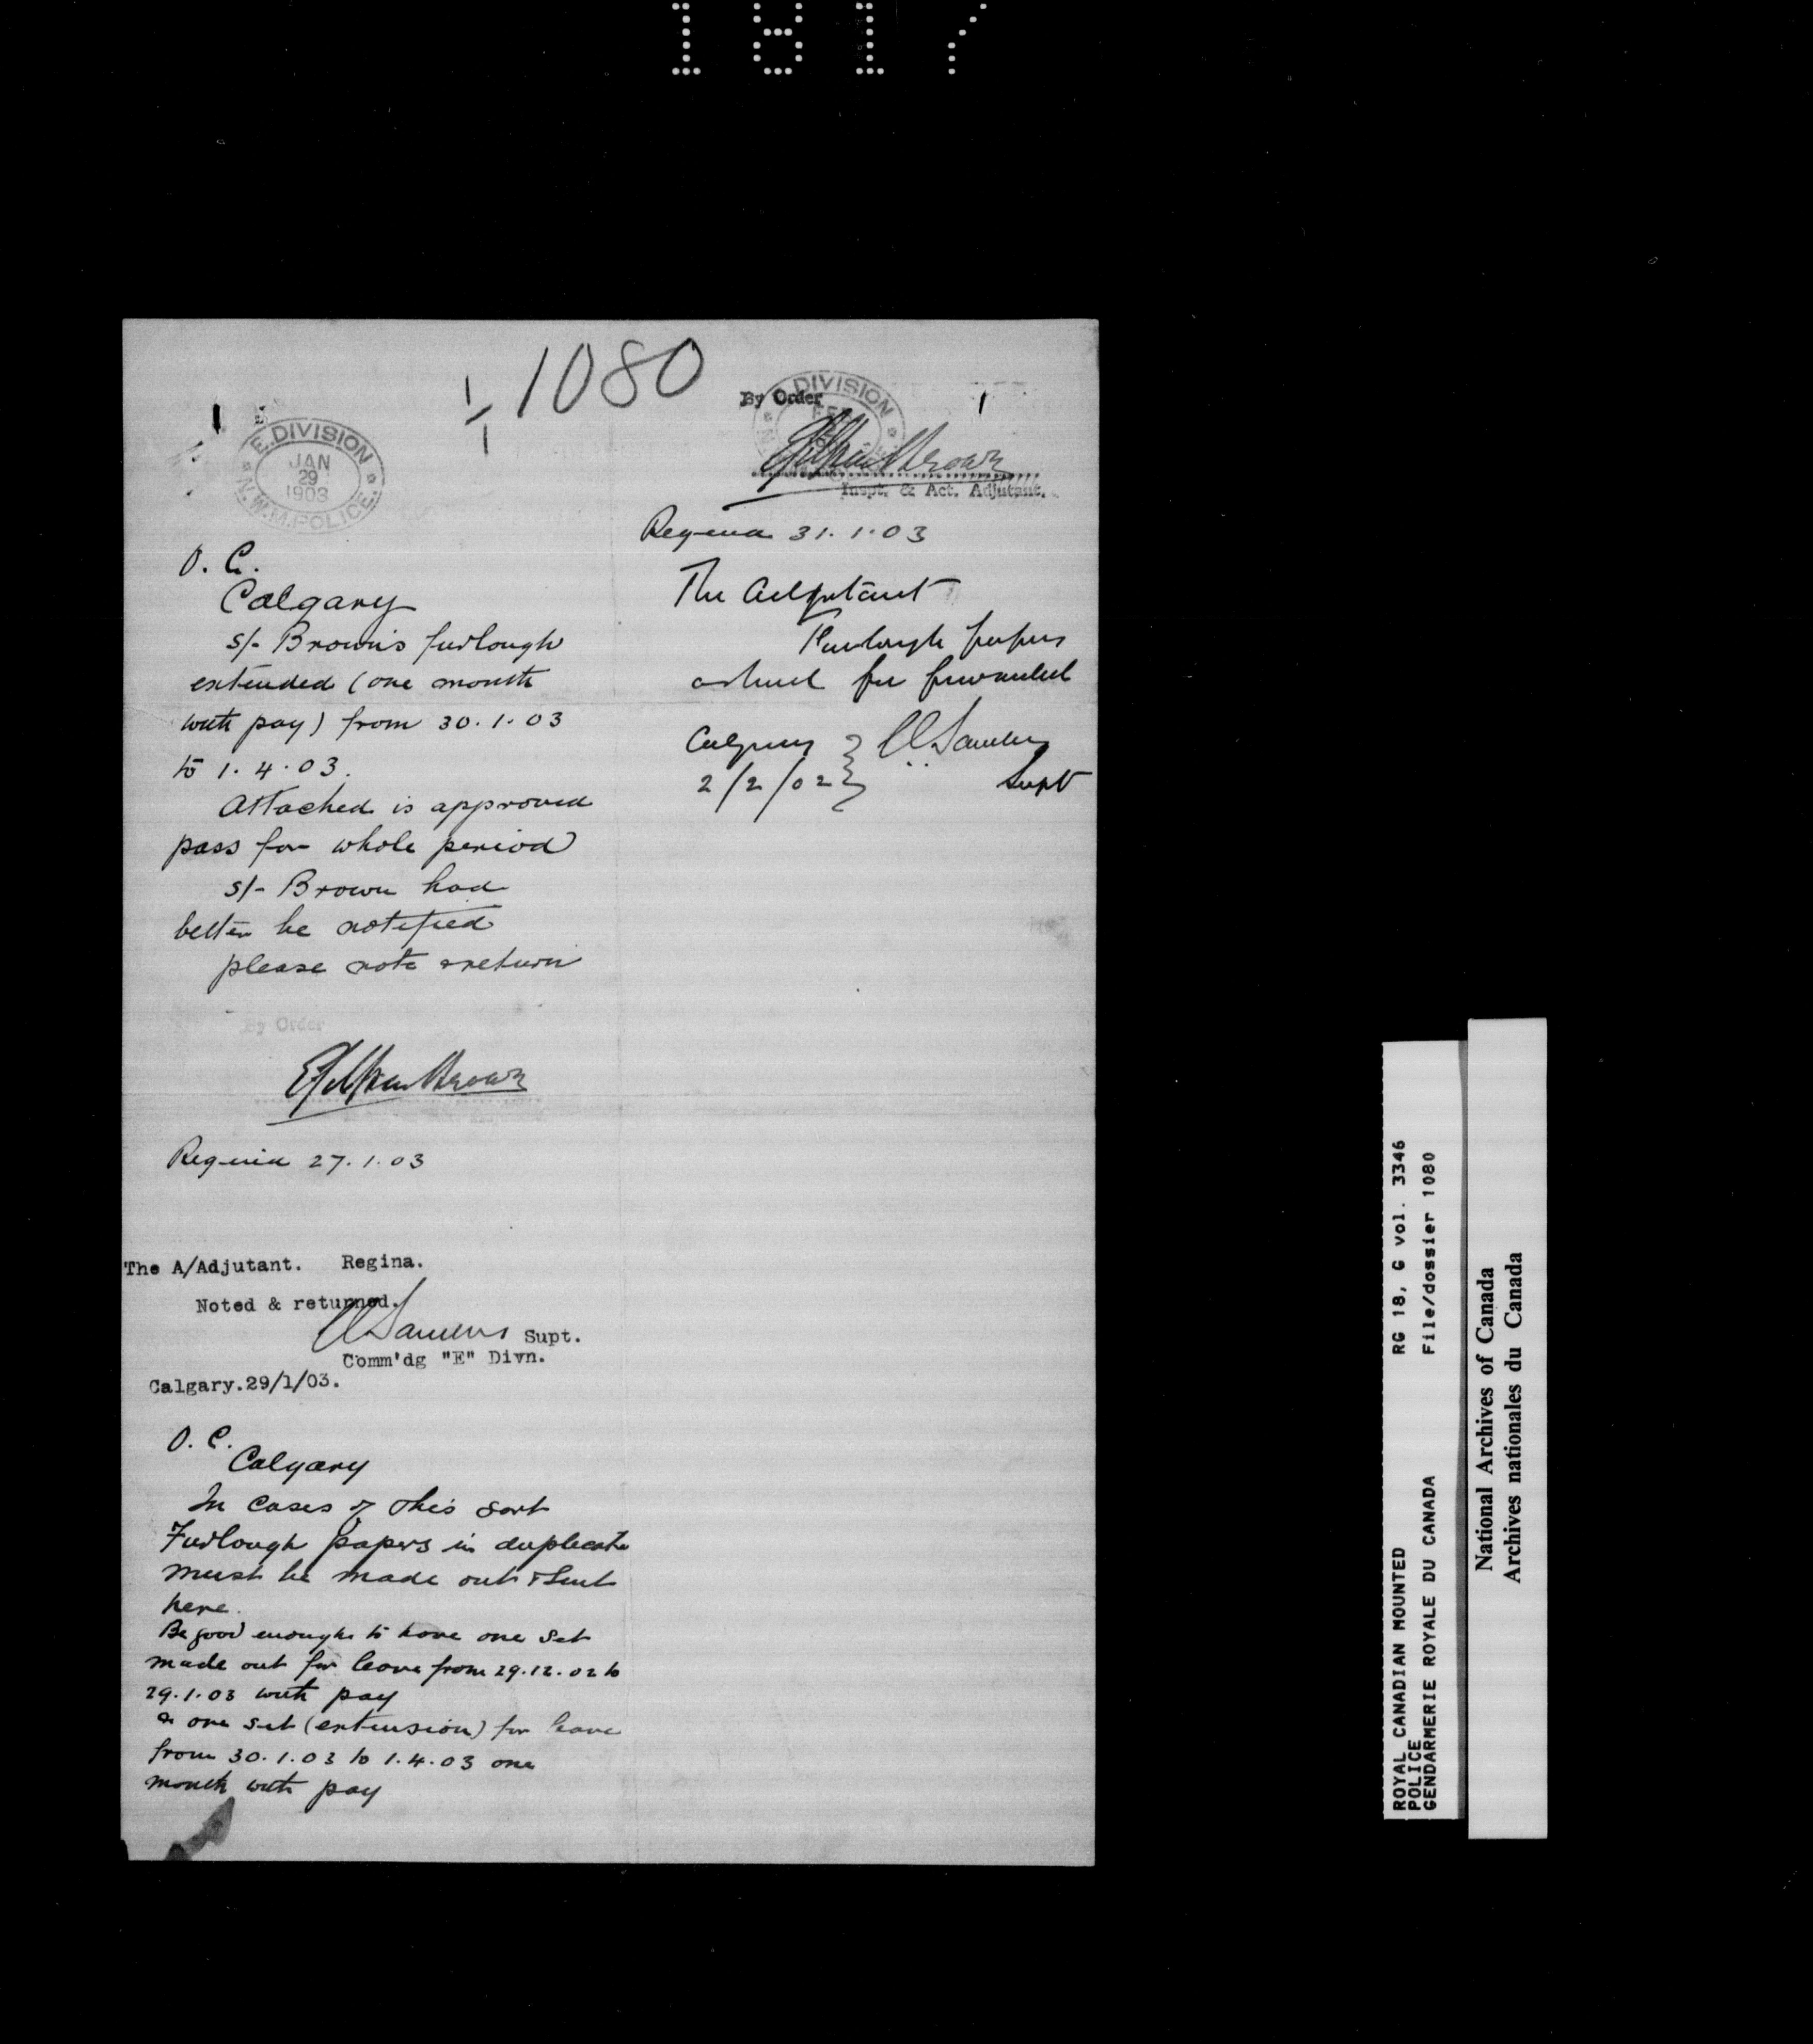 1817
1080
E. DIVISION
JAN
29
1903
N.W.M. POLICE.
O. C.
Calgary
s/- Brown's furlough
extended (one month
with pay) from 30.1.03
to 1.4.03.
Attached is approved
pass for whole period
s/- Brown had
better be notified
please note & return
By Order
Regina 27.1.03
The A/Adjutant. Regina.
Noted & returned.
Sanders Supt.
Comm'dg "E" Divn.
Calgary.29/1/03.
O. C.
Calgary
In cases of this sort
Furlough papers in duplicate
must be made out & sent
here.
Be good enough to have one set
made out for leave from 29.12.02 to
29.1.03 with pay
& one set (extension) for leave
from 30.1.03 to 1.4.03 one
month with pay
By Order
DIVISION
FEB
Inspt. & Act. Adjutant.
Regina 31.1.03
The Adjutant
Furlough papers
as forwarded
Calgary
2/2/02
Sanders
Supt
ROYAL CANADIAN MOUNTED
POLICE
GENDARMERIE ROYALE DU CANADA
RG 18, G vol. 3346
File/dossier 1080
National Archives of Canada
Archives nationales du Canada